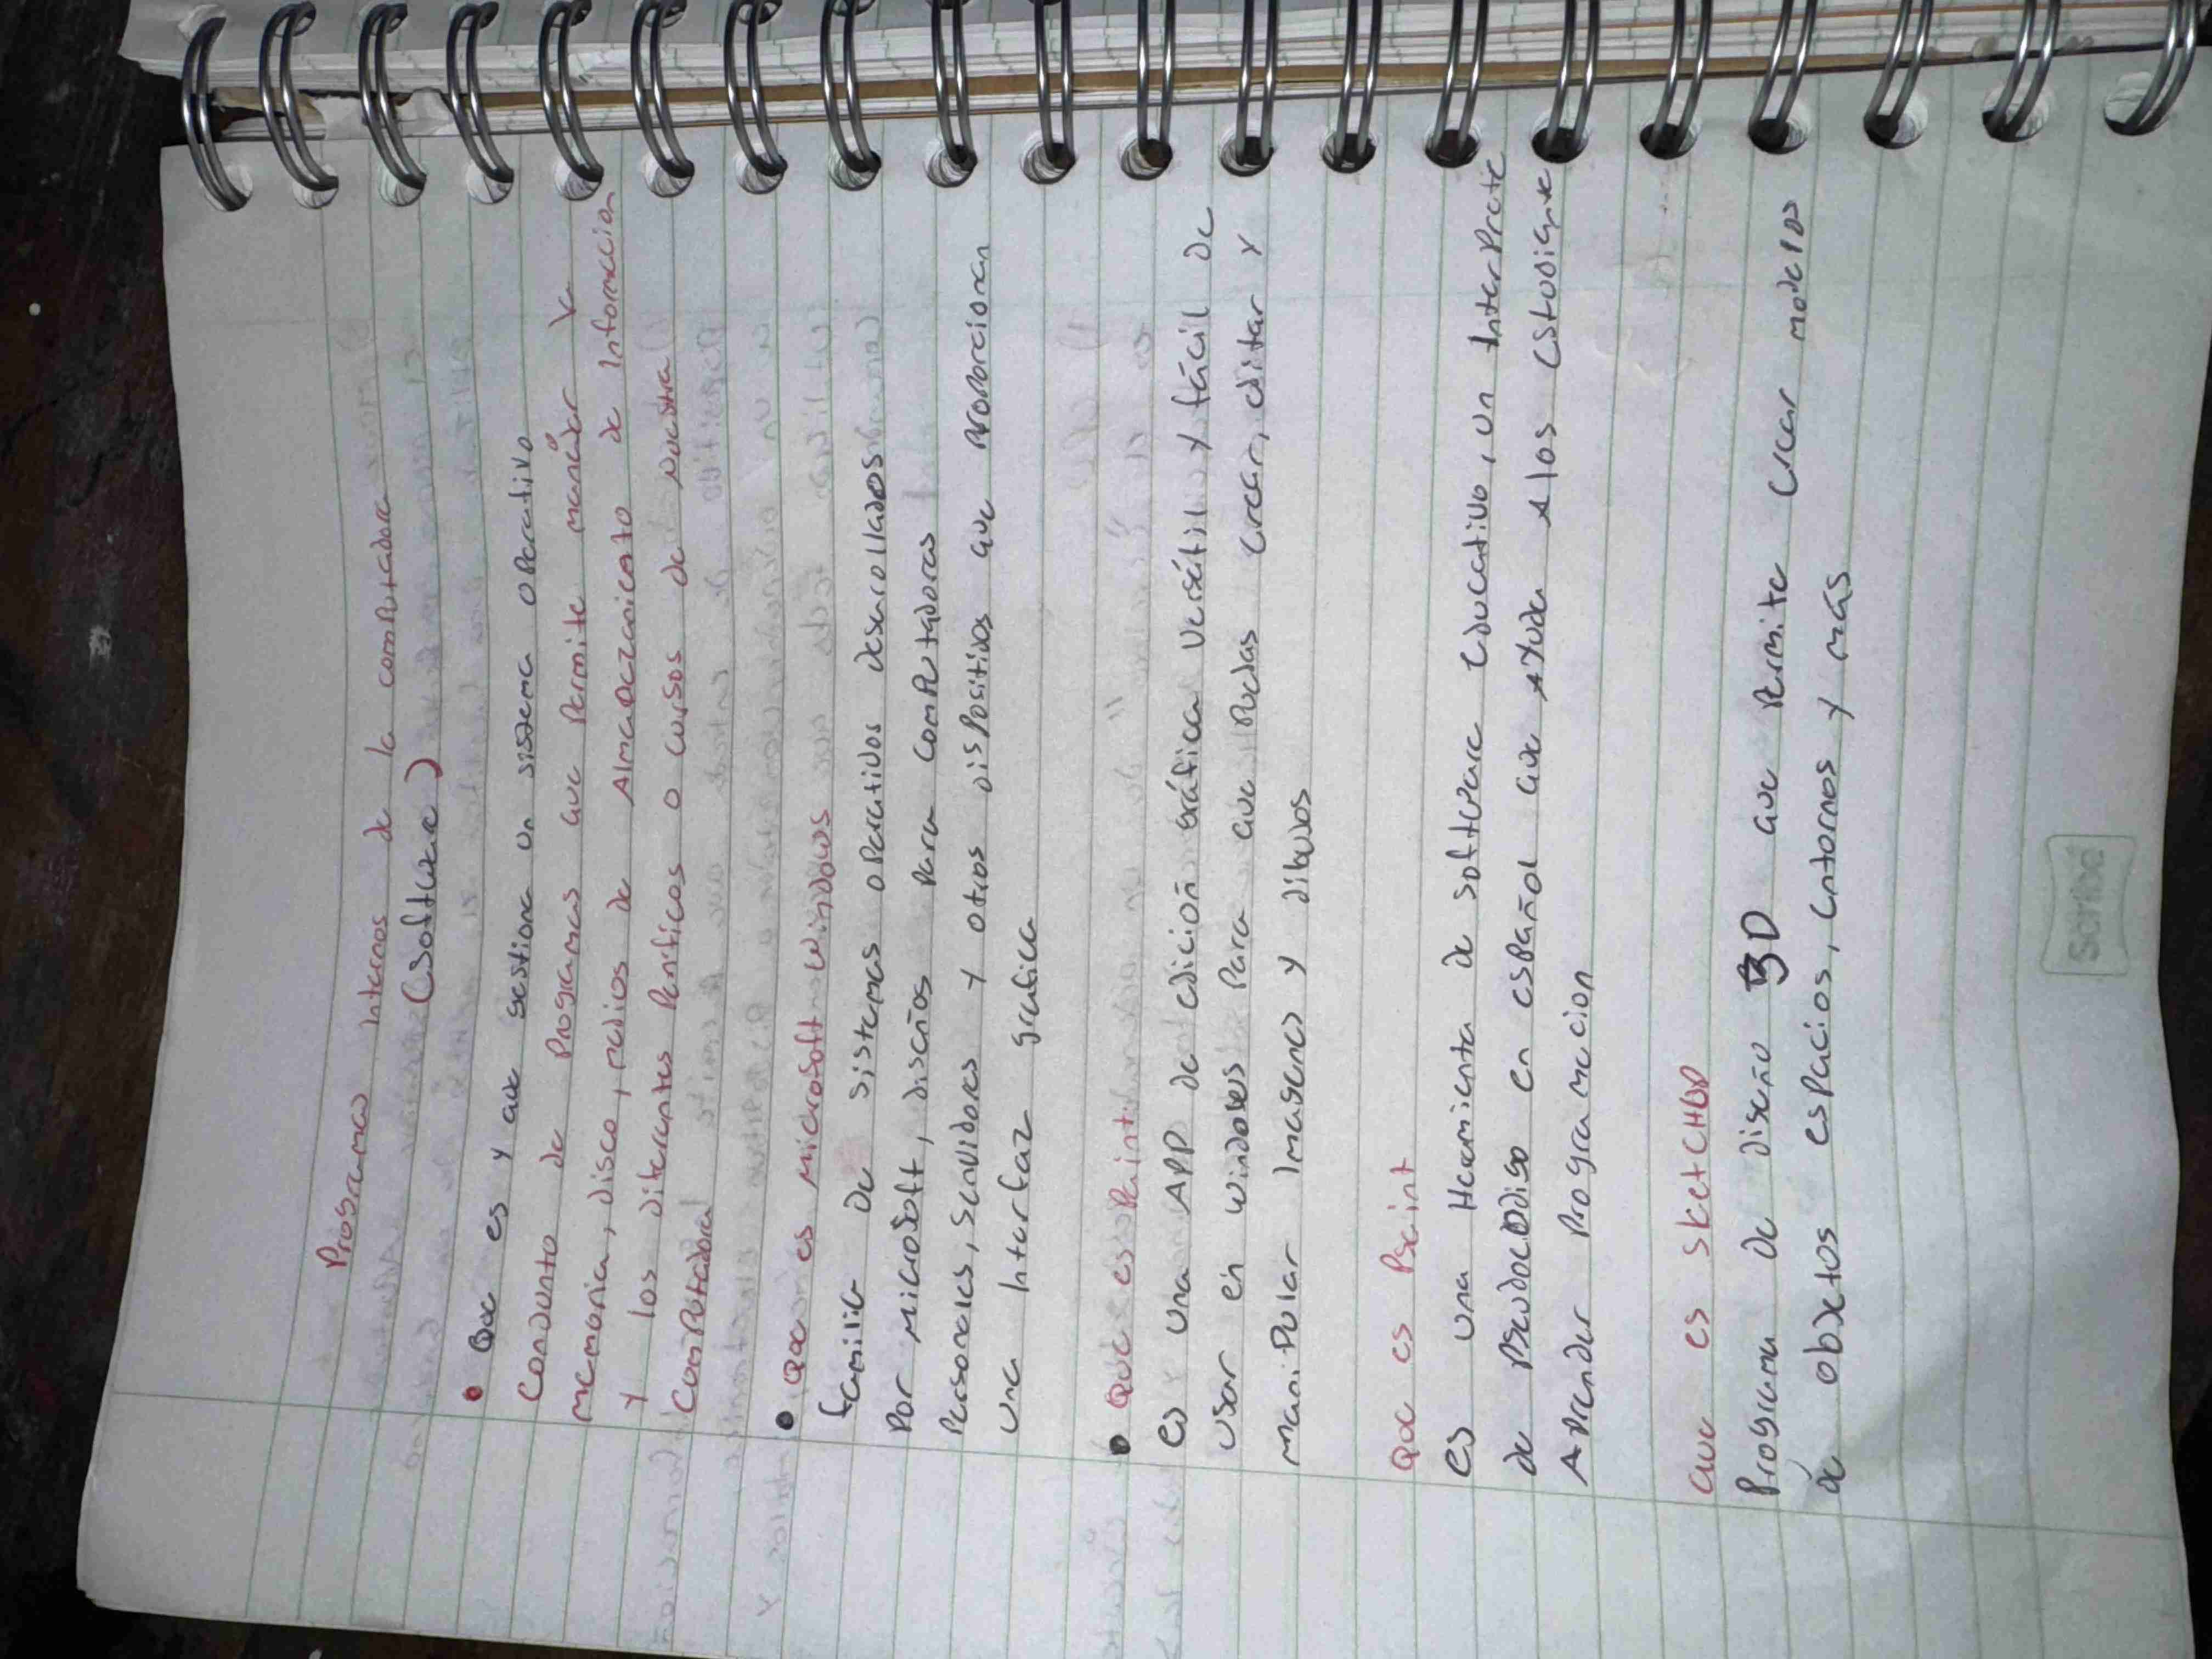 Programas internos de la computadora
(Software)
• Que es y que gestiona un sistema operativo
Conjunto de Programas que Permite manejar la
memoria, disco, medios de Almacenamiento de Informacion
y los diferentes Perifericos o cursos de nuestra
Computadora
• Que es Microsoft Windows
familia De sistemas operativos desarollados
Por Microsoft, diseños Para Computadoras
Personales, servidores y otros dispositivos que proporcionan
una Interfaz grafica
• Que es Paint
es una APP de edición gráfica versátil y fácil de
usar en Windows Para que Puedas Crear, editar y
maniPular Imagenes y dibujos
Que es Pseint
es una Herramienta de software educativo, un InterPrete
de Pseudocodigo en español que Ayuda A los estudiante
APrender Programacion
Que es SketCHUP
Programa De diseño 3D que Permite Crear modelos
de objetos espacios, entornos y más
Scribe